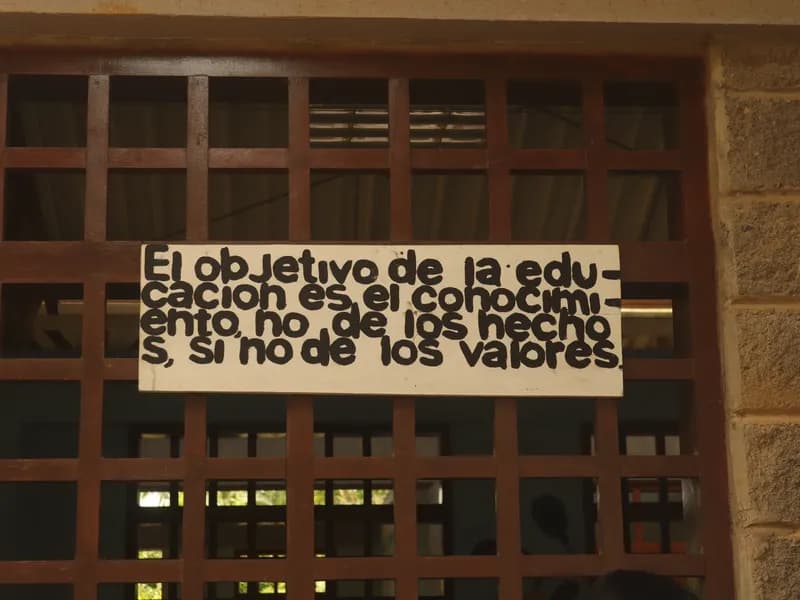 El objetivo de la edu-
cacion es el conocimi-
ento, no de los hecho
s, si no de los valores.